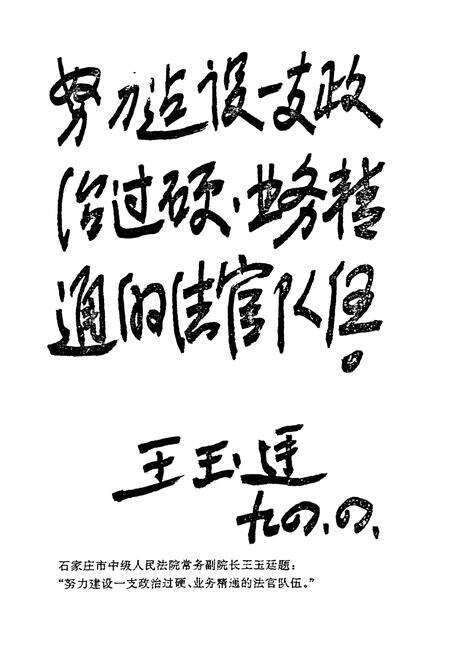 努力建设一支政
治过硬、业务精
通的法官队伍！
王玉廷
九四.四.
石家庄市中级人民法院常务副院长王玉廷题：
“努力建设一支政治过硬、业务精通的法官队伍。”